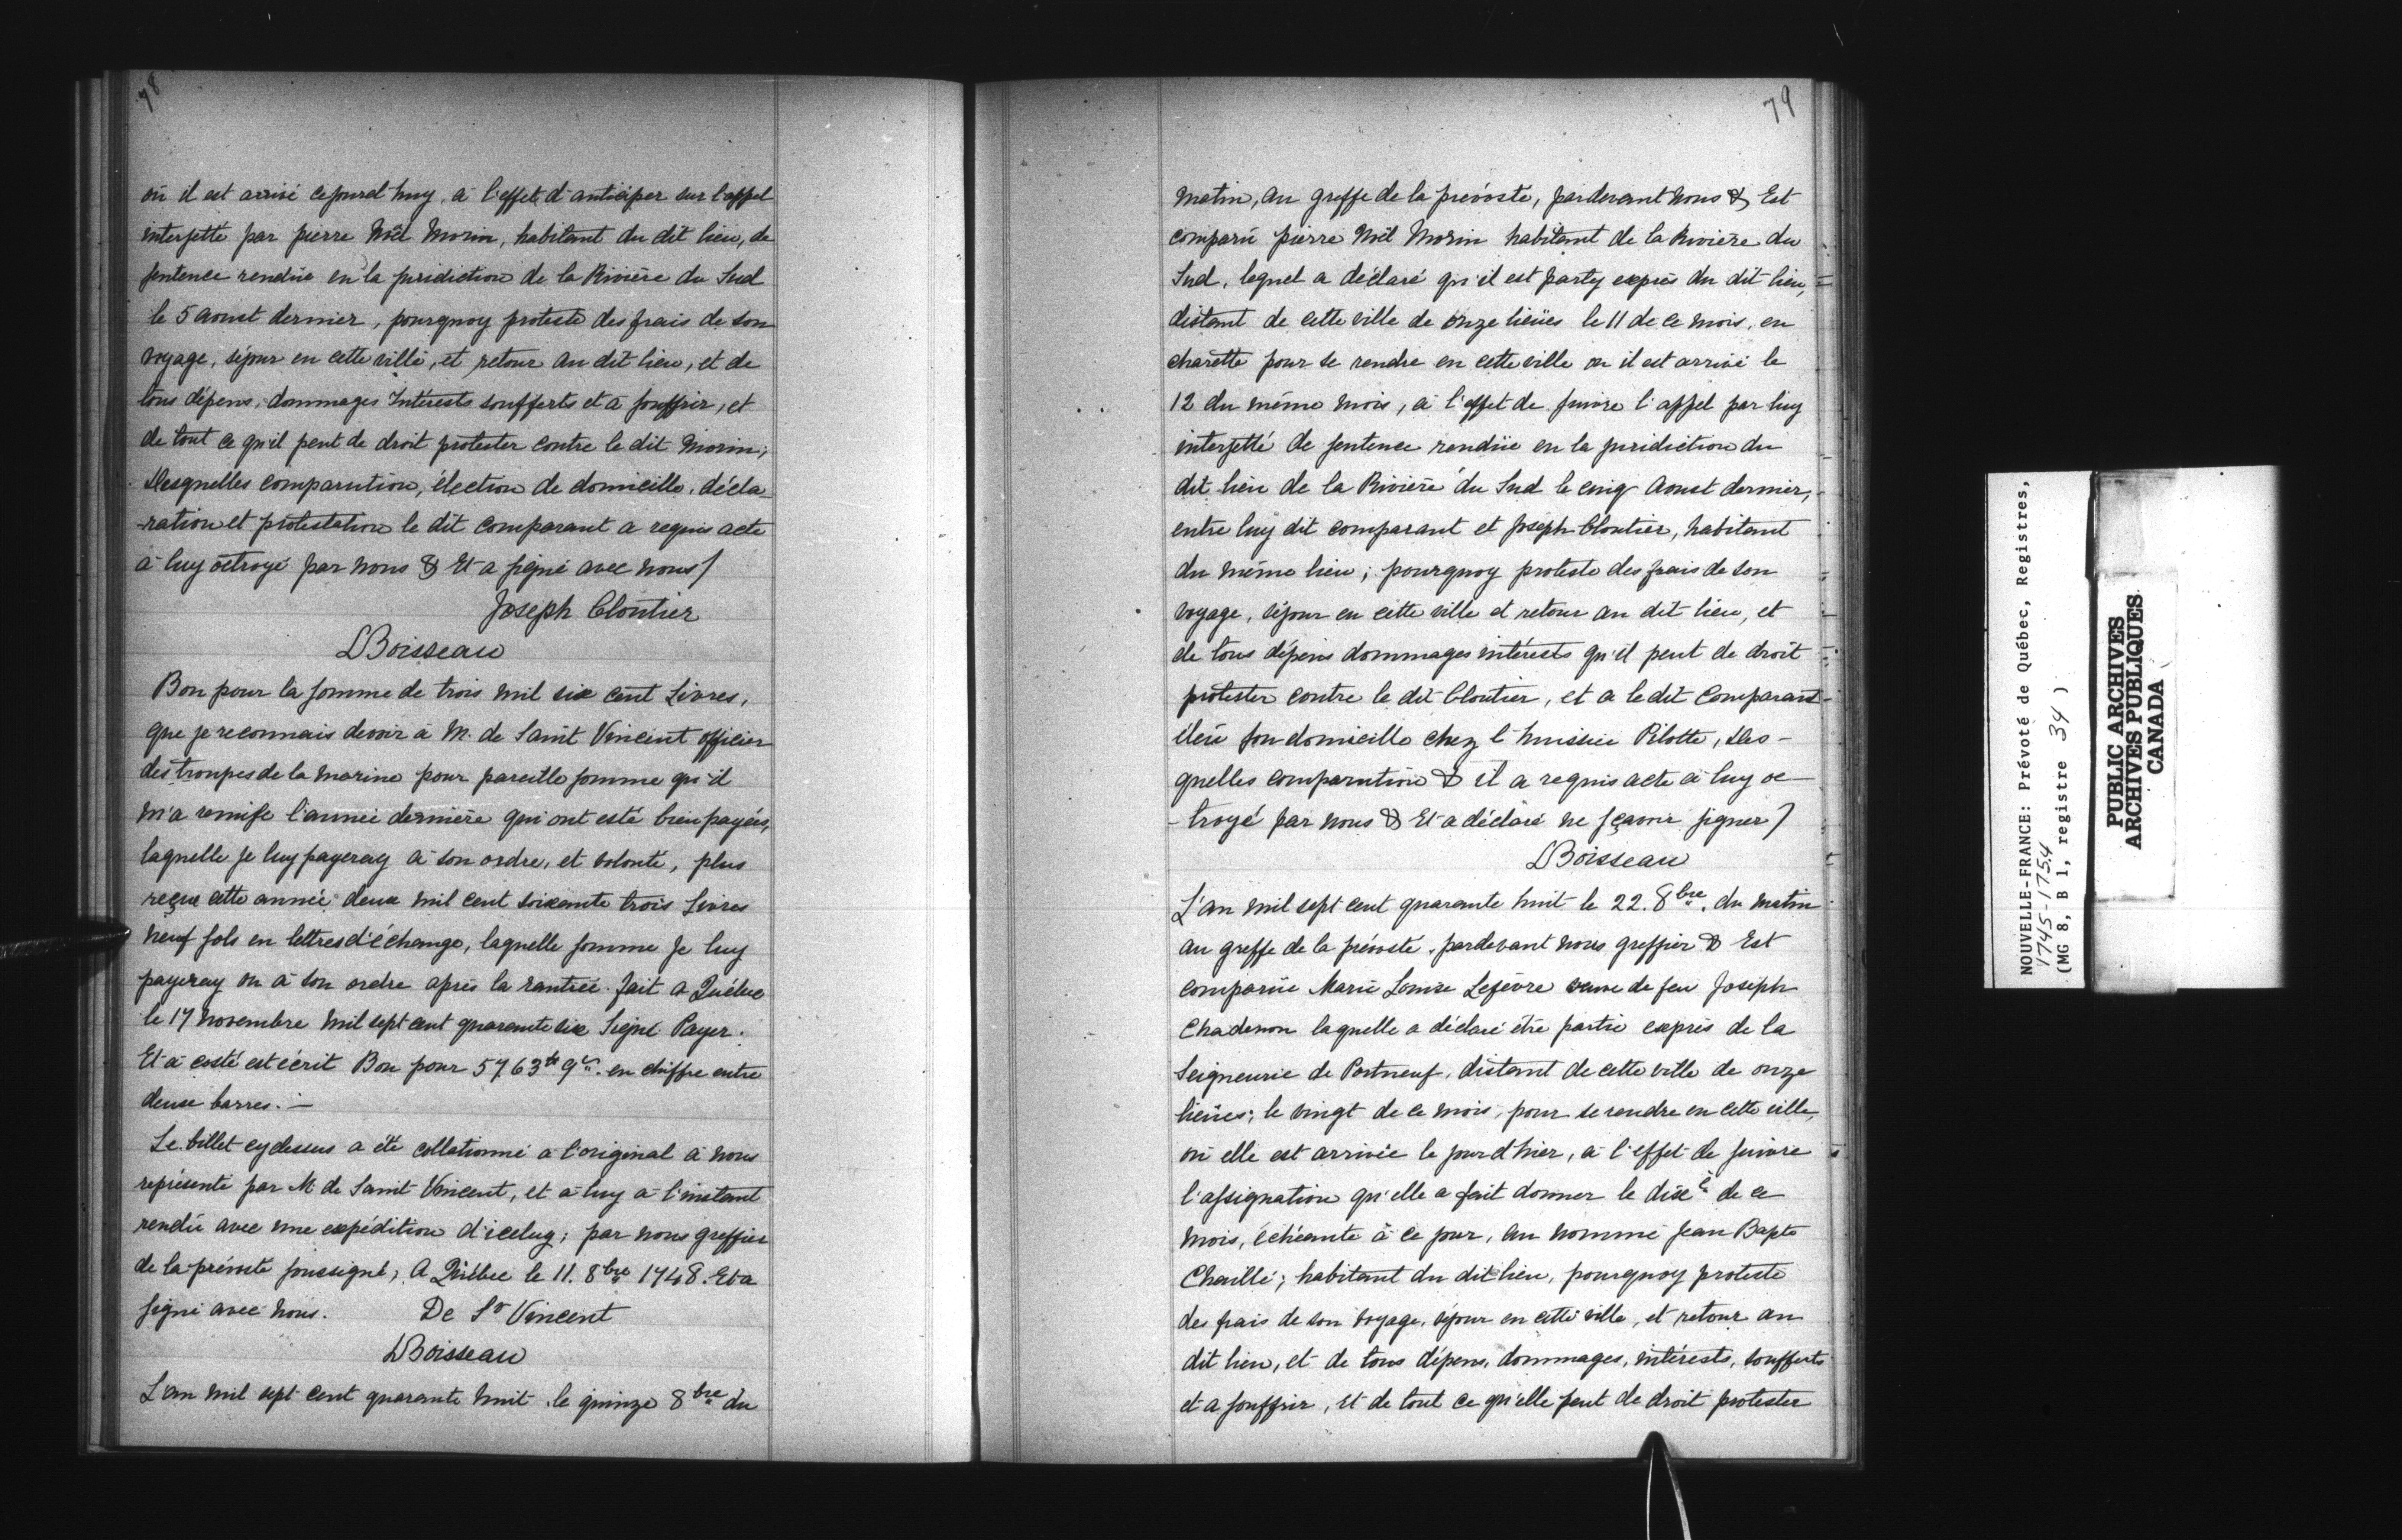 78
où il est arrivé cejourd'huy, à l'effet d'anticiper sur l'appel
interjetté par pierre Noël Morin, habitant du dit lieu, de
sentence rendüe en la juridiction de la Rivière du Sud
le 5 aoust dernier, pourquoy proteste des frais de son
voyage, séjour en cette ville, et retour au dit lieu, et de
tous dépens, dommages Intérests soufferts et à souffrir, et
de tout ce qu'il peut de droit protester contre le dit Morin;
Desquelles comparution, élection de domicille, décla-
-ration et protestation le dit comparant a requis acte
à luy octroyé par nous & Et a signé avec nous/
Joseph Cloutier
LBoisseau
Bon pour la somme de trois mil six cent Livres,
que je reconnais devoir à M. de Saint Vincent officier
des troupes de la marine pour pareille somme qu'il
m'a remise l'année dernière qui ont esté bien payées,
laquelle je luy payeray à son ordre, et volonté, plus
reçue cette année deux mil cent soixante trois Livres
neuf sols en lettres d'échange, laquelle somme je luy
payeray ou à son ordre après la rantrée. fait a Québec
le 17 novembre mil sept cent quarante six Signé Payer.
Et à costé est écrit Bon pour 5763tt 9s. en chiffre entre
deux barres. —
Le billet cydessus a été collationné a l'original à nous
représenté par M de Saint Vincent, et à luy à l'instant
rendü avec une expédition d'iceluy; par nous greffier
de la prévosté soussigné, A Québec le 11. 8bre 1748. Et a
signé avec nous. De St Vincent
LBoisseau
L'an mil sept cent quarante huit le quinze 8bre du
79
matin, au greffe de la prévosté, pardevant nous & Est
comparü pierre Noël Morin habitant de la Rivière du
Sud, lequel a déclaré qu'il est party exprès du dit lieu,
distant de cette ville de onze lieües le 11 de ce mois, en
charette pour se rendre en cette ville ou il est arrivé le
12 du même mois, à l'effet de suivre l'appel par luy
interjetté de sentence rendüe en la juridiction du
dit lieu de la Rivière du Sud le cinq Aoust dernier,
entre luy dit comparant et Joseph Cloutier, habitant
du même lieu; pourquoy proteste des frais de son
voyage, séjour en cette ville et retour au dit lieu, et
de tous dépens dommages intérests qu'il peut de droit
protester contre le dit Cloutier, et a le dit Comparant
éleü son domicille chez l'huissier Pilotte, Des-
quelles comparution & il a requis acte à luy oc-
-troyé par nous & Et a déclaré ne sçavoir signer/
LBoisseau
L'an mil sept cent quarante huit le 22. 8bre. du matin
au greffe de la prévosté, pardevant nous greffier & Est
comparüe Marie Louise Lefèvre veuve de feu Joseph
Chadenon laquelle a déclaré être partie exprès de la
Seigneurie de Portneuf, distant de cette ville de onze
lieües; le vingt de ce mois, pour se rendre en cette ville,
où elle est arrivée le jour d'hier, à l'effet de suivre
l'assignation qu'elle a fait donner le dixe de ce
mois, échéante à ce jour, au nommé Jean Bapte
Chaillé; habitant du dit lieu, pourquoy proteste
des frais de son voyage, séjour en cette ville, et retour au
dit lieu, et de tous dépens, dommages, intérests, soufferts
et a souffrir, et de tout ce qu'elle peut de droit protester
NOUVELLE-FRANCE: Prévoté de Québec, Registres,
1745-1754
(MG 8, B 1, registre 34 )
PUBLIC ARCHIVES
ARCHIVES PUBLIQUES
CANADA